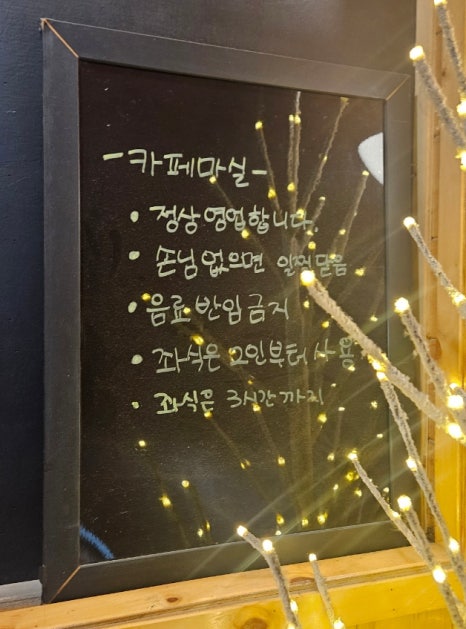 -카페마실-
• 정상영업합니다.
• 손님없으면 일찍닫음
• 음료 반입금지
• 좌식은 2인부터 사용
• 좌식은 3시간까지